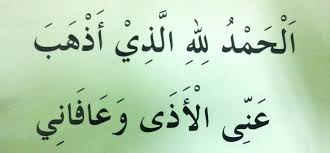 اَلْحَمْدُ لِلّٰهِ الَّذِيْ أَذْهَبَ
عَنِّى الْأَذَى وَعَافَانِي